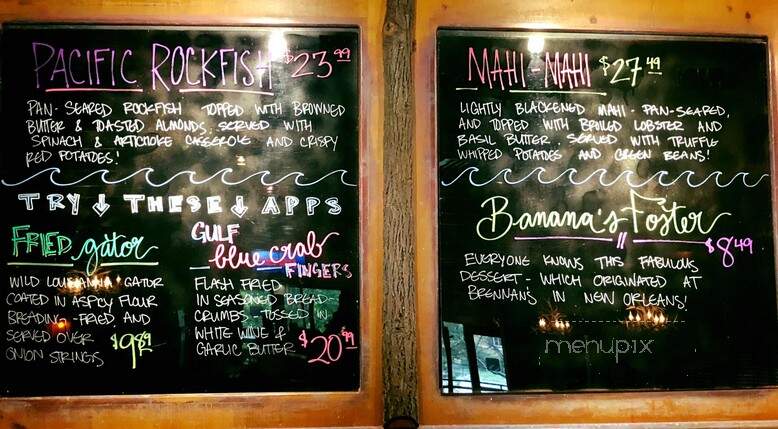 PACIFIC ROCKFISH $23 99
PAN-SEARED ROCKFISH TOPPED WITH BROWNED
BUTTER & TOASTED ALMONDS. SERVED WITH
SPINACH & ARTICHOKE CASSEROLE AND CRISPY
RED POTATOES!
TRY THESE APPS
FRIED gator
WILD LOUISIANNA GATOR
COATED IN ASPCY FLOUR
BREADING - FRIED AND
SERVED OVER
ONION STRINGS
$9 89
GULF
blue crab
FINGERS
FLASH FRIED
IN SEASONED BREAD-
CRUMBS - TOSSED IN
WHITE WINE &
GARLIC BUTTER
$20 99
MAHI-MAHI $27 49
LIGHTLY BLACKENED MAHI - PAN-SEARED,
AND TOPPED WITH BROILED LOBSTER AND
BASIL BUTTER. SERVED WITH TRUFFLE
WHIPPED POTATOES AND GREEN BEANS!
Banana's Foster
$8 49
EVERYONE KNOWS THIS FABULOUS
DESSERT - WHICH ORIGINATED AT
BRENNANS IN NEW ORLEANS!
menupix